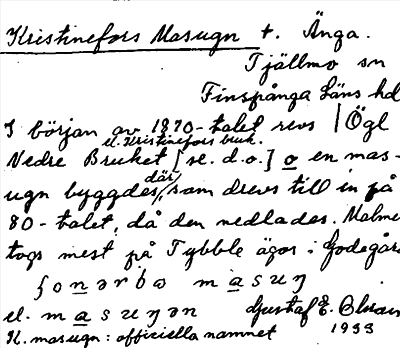 Kristinefors Masugn t. Änga.
Tjällmo sn
Finspånga Läns hd
I början av 1870-talet revs | Ögl
el. Kristinefors bruk.
Nedre Bruket [se. d.o.] o en mas-
där
ugn byggdes, som drevs till in på
80-talet, då den nedlades. Malmen
togs mest på Tybble ägor i Godegård
masuŋ
el. masuŋən Gustaf E.
K. masugn: officiella namnet 1933